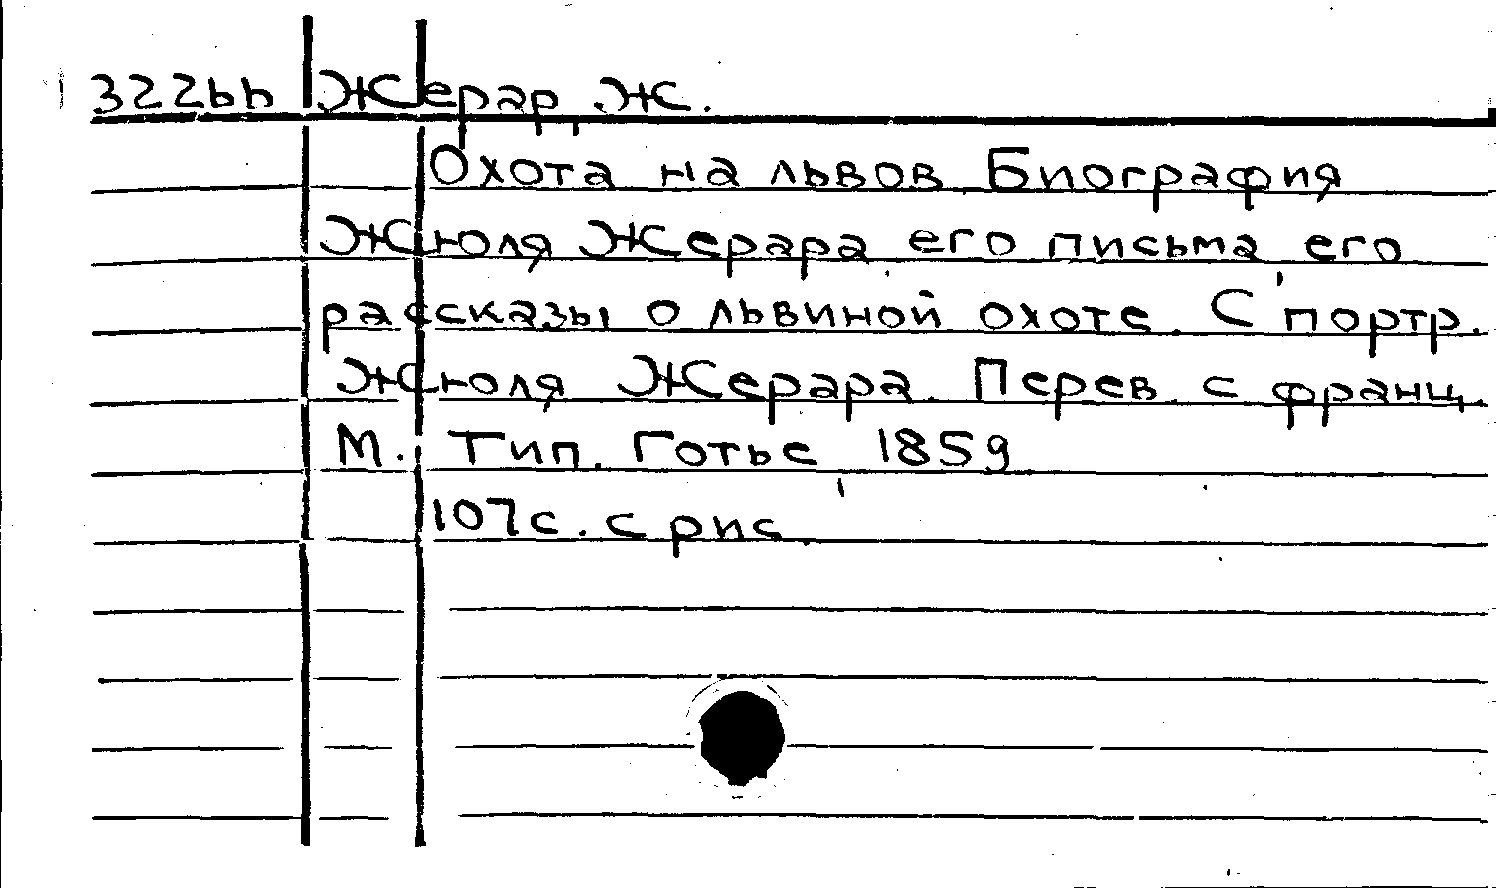 322bb Жерар, Ж.
Охота на львов. Биография
Жюля Жерара, его письма, его
рассказы о львиной охоте. С портр.
Жюля Жерара. Перев. с франц.
М. Тип. Готье, 1859
107с. с рис.